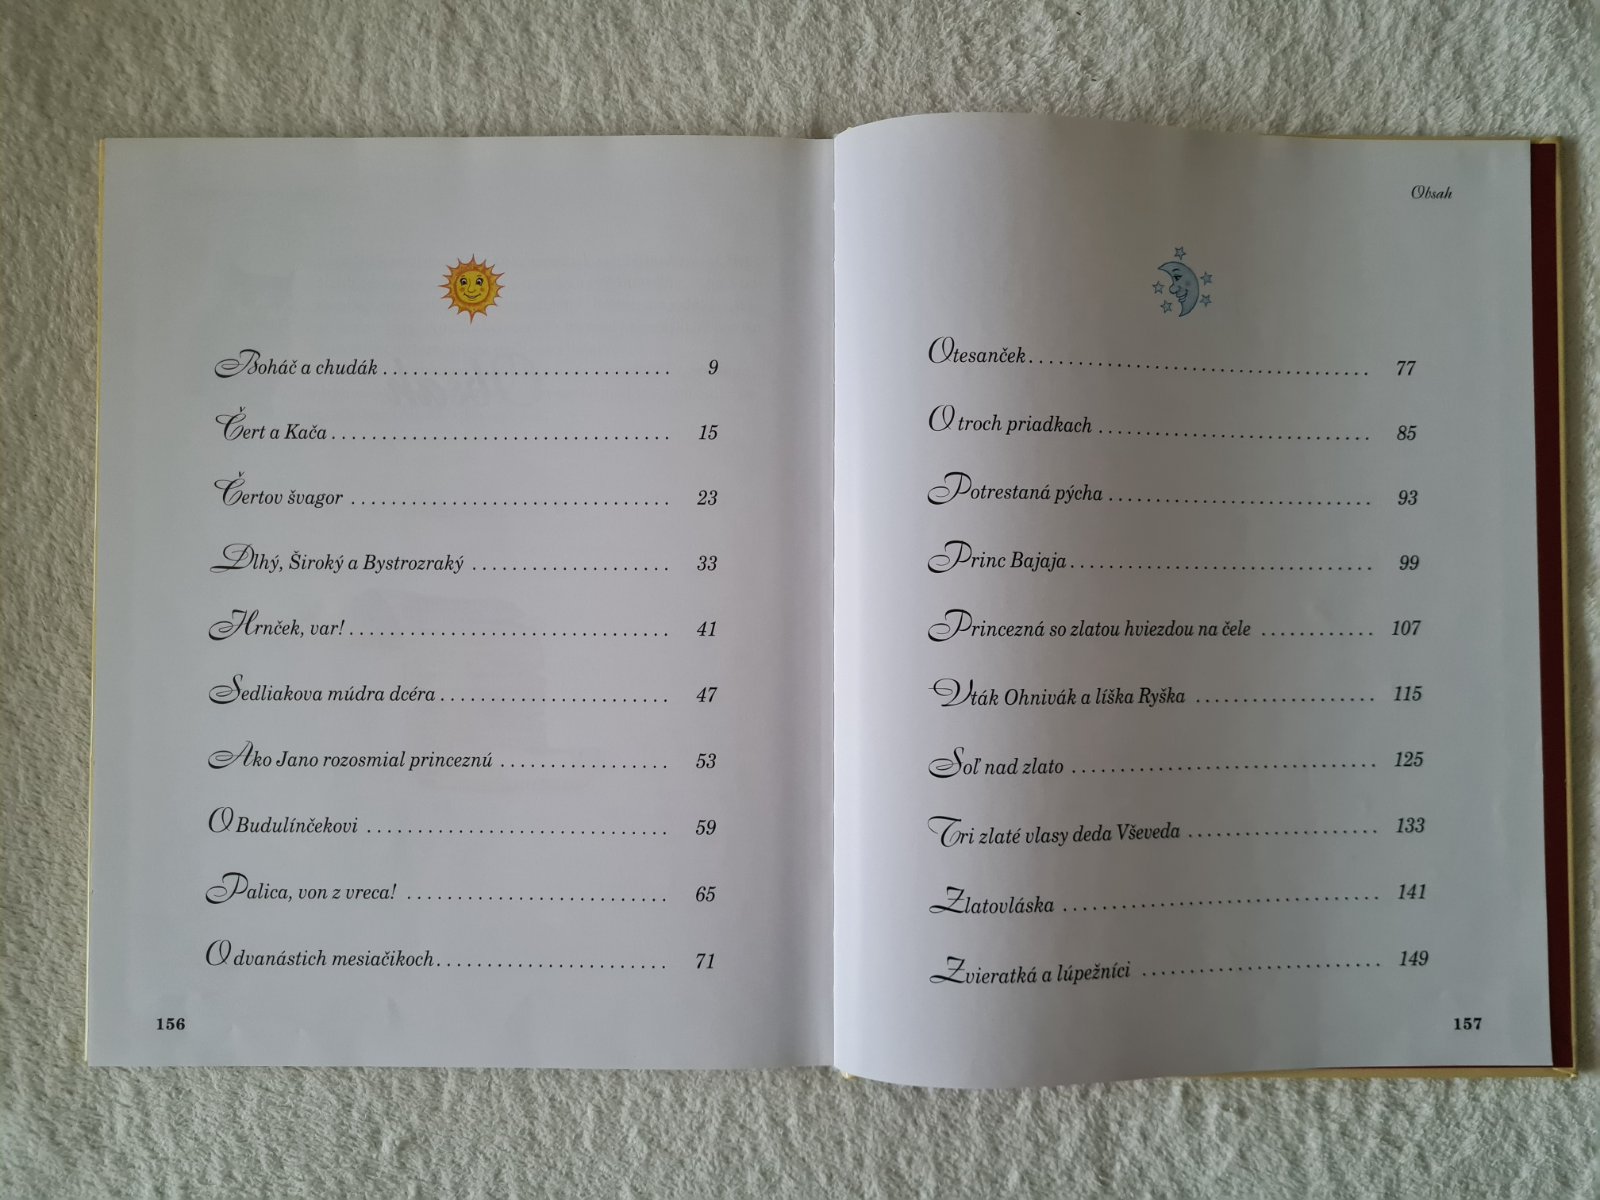 Boháč a chudák . . . . . . . . . . . . . . . . . . . . . . . . . . . . . 9
Čert a Kača . . . . . . . . . . . . . . . . . . . . . . . . . . . . . . . . . . 15
Čertov švagor . . . . . . . . . . . . . . . . . . . . . . . . . . . . . . . . 23
Dlhý, Široký a Bystrozraký . . . . . . . . . . . . . . . . . . . . 33
Hrnček, var! . . . . . . . . . . . . . . . . . . . . . . . . . . . . . . . . 41
Sedliakova múdra dcéra . . . . . . . . . . . . . . . . . . . . . . . 47
Ako Jano rozosmial princeznú . . . . . . . . . . . . . . . . . 53
O Budulínčekovi . . . . . . . . . . . . . . . . . . . . . . . . . . . . . . 59
Palica, von z vreca! . . . . . . . . . . . . . . . . . . . . . . . . . . 65
O dvanástich mesiačikoch . . . . . . . . . . . . . . . . . . . . . . . 71
156
Obsah
Otesanček . . . . . . . . . . . . . . . . . . . . . . . . . . . . . . . . . . 77
O troch priadkach . . . . . . . . . . . . . . . . . . . . . . . . . . . 85
Potrestaná pýcha . . . . . . . . . . . . . . . . . . . . . . . . . . 93
Princ Bajaja . . . . . . . . . . . . . . . . . . . . . . . . . . . . . . 99
Princezná so zlatou hviezdou na čele . . . . . . . . . . . . 107
Vták Ohnivák a líška Ryška . . . . . . . . . . . . . . . . . . 115
Soľ nad zlato . . . . . . . . . . . . . . . . . . . . . . . . . . . . . . 125
Tri zlaté vlasy deda Vševeda . . . . . . . . . . . . . . . . . . . 133
Zlatovláska . . . . . . . . . . . . . . . . . . . . . . . . . . . . . . . . 141
Zvieratká a lúpežníci . . . . . . . . . . . . . . . . . . . . . . . . 149
157